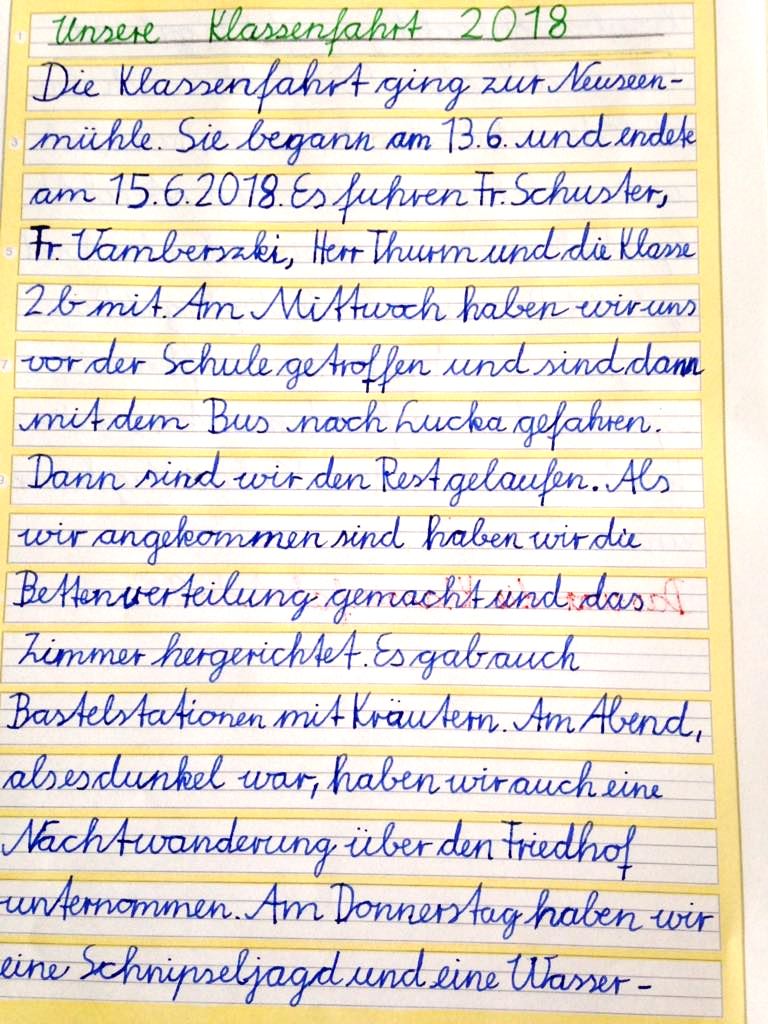 Unsere Klassenfahrt 2018
Die Klassenfahrt ging zur Neuseen-
mühle. Sie begann am 13.6. und endete
am 15.6.2018. Es fuhren Fr. Schuster,
Fr. Vamberszki, Herr Thurm und die Klasse
2b mit. Am Mittwoch haben wir uns
vor der Schule getroffen und sind dann
mit dem Bus nach Lucka gefahren.
Dann sind wir den Rest gelaufen. Als
wir angekommen sind haben wir die
Bettenverteilung gemacht und das
Zimmer hergerichtet. Es gab auch
Bastelstationen mit Kräutern. Am Abend,
als es dunkel war, haben wir auch eine
Nachtwanderung über den Friedhof
unternommen. Am Donnerstag haben wir
eine Schnipseljagd und eine Wasser-